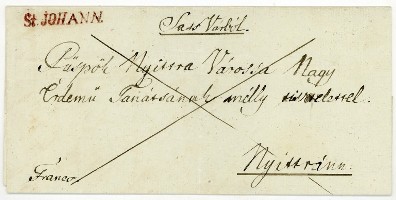 St. JOHANN.
Sass Várból.
Püspök Nyittra Várossa Nagy
Érdemű Tanátsának mélly tisztelettel.
Nyittránn.
Franco